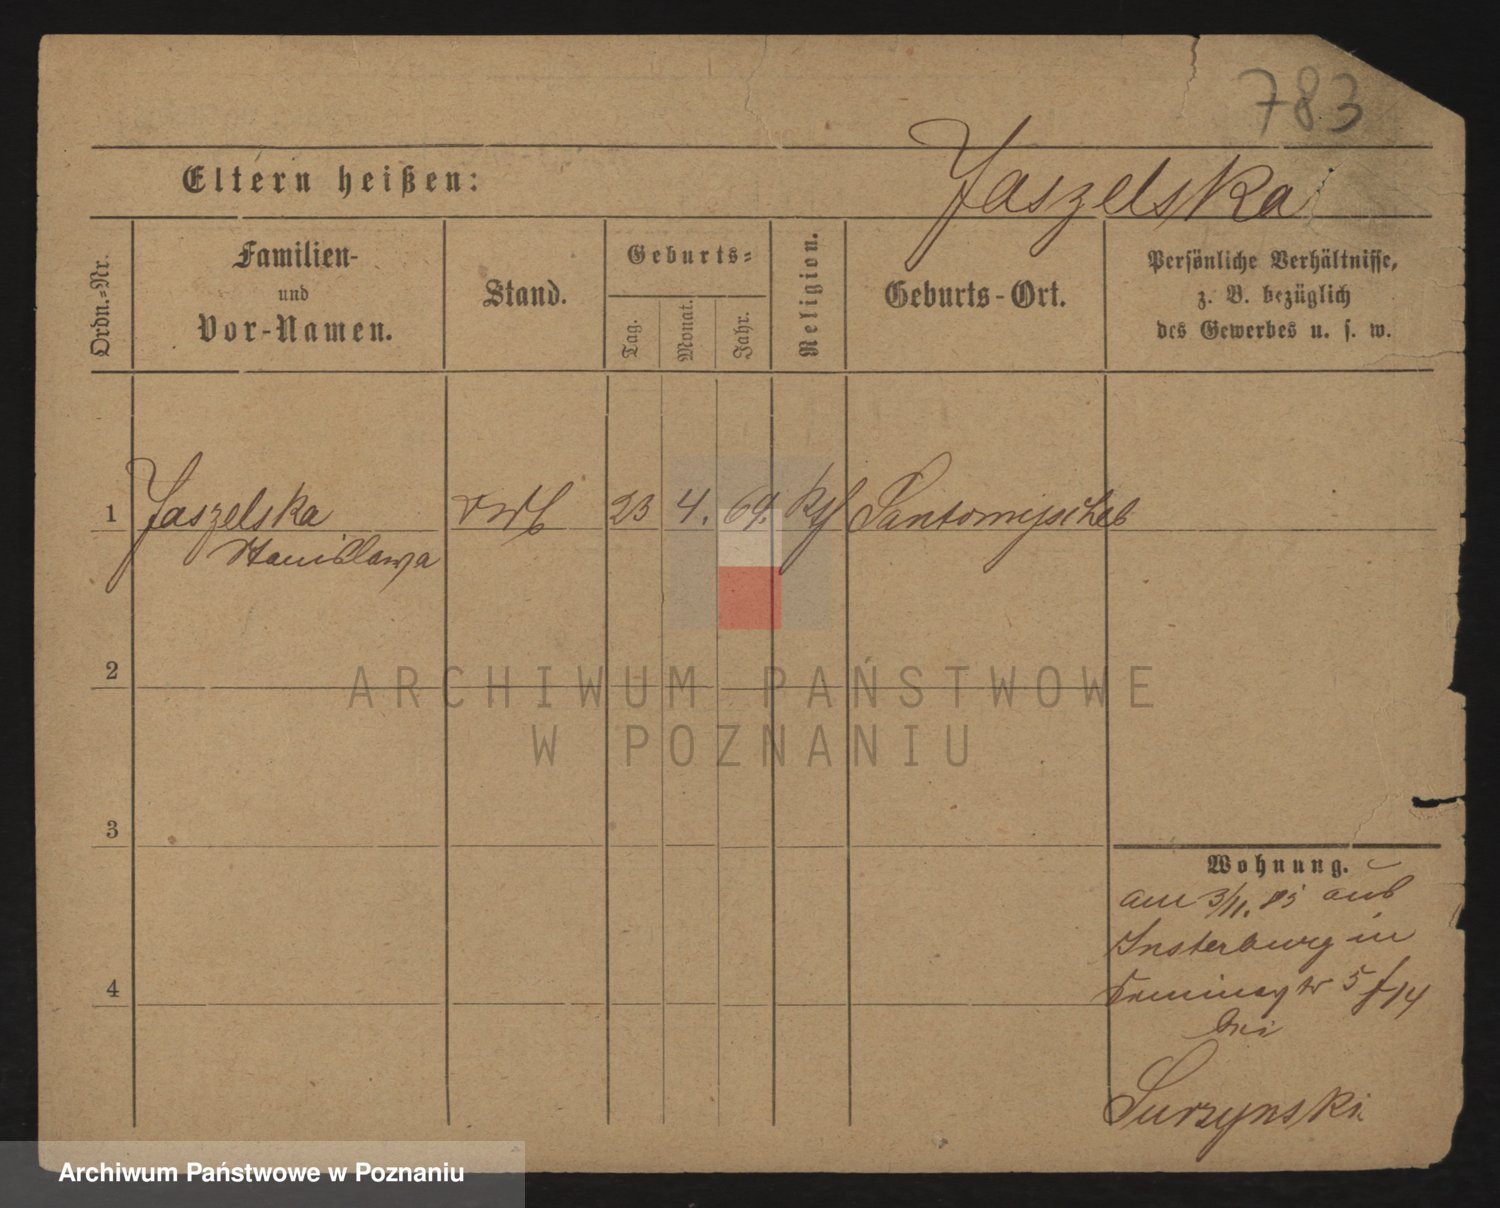 783
Eltern heißen:
Jaszelska
Ordn.-Nr.
Familien-
und
Vor-Namen.
Stand.
Geburts-
Tag.
Monat.
Jahr.
Religion.
Geburts-Ort.
Persönliche Verhältnisse,
z. B. bezüglich
des Gewerbes u. s. w.
1 Jaszelska 23 4. 69. Kth Santomischel
Stanislawa
2
3
4
Wohnung.
am 3/11. 85 aus
Insterburg in
5 14
bei
Surzynski
ARCHIWUM PAŃSTWOWE
W POZNANIU
Archiwum Państwowe w Poznaniu